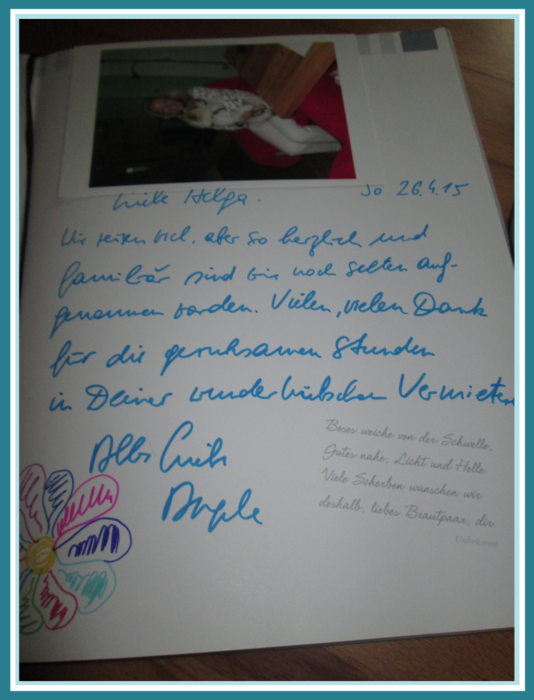 Liebe Helga.
So 26.4.15
Wir reisen viel, aber so herzlich und
familiär sind wir noch selten auf-
genommen worden. Vielen, vielen Dank
für die geruhsamen Stunden
in Deiner wunderhübschen
Alles Liebe
Böses weiche von der Schwelle,
Gutes nahe, Licht und Helle.
Viele Scherben wünschen wir
deshalb, liebes Brautpaar, dir.
Unbekannt